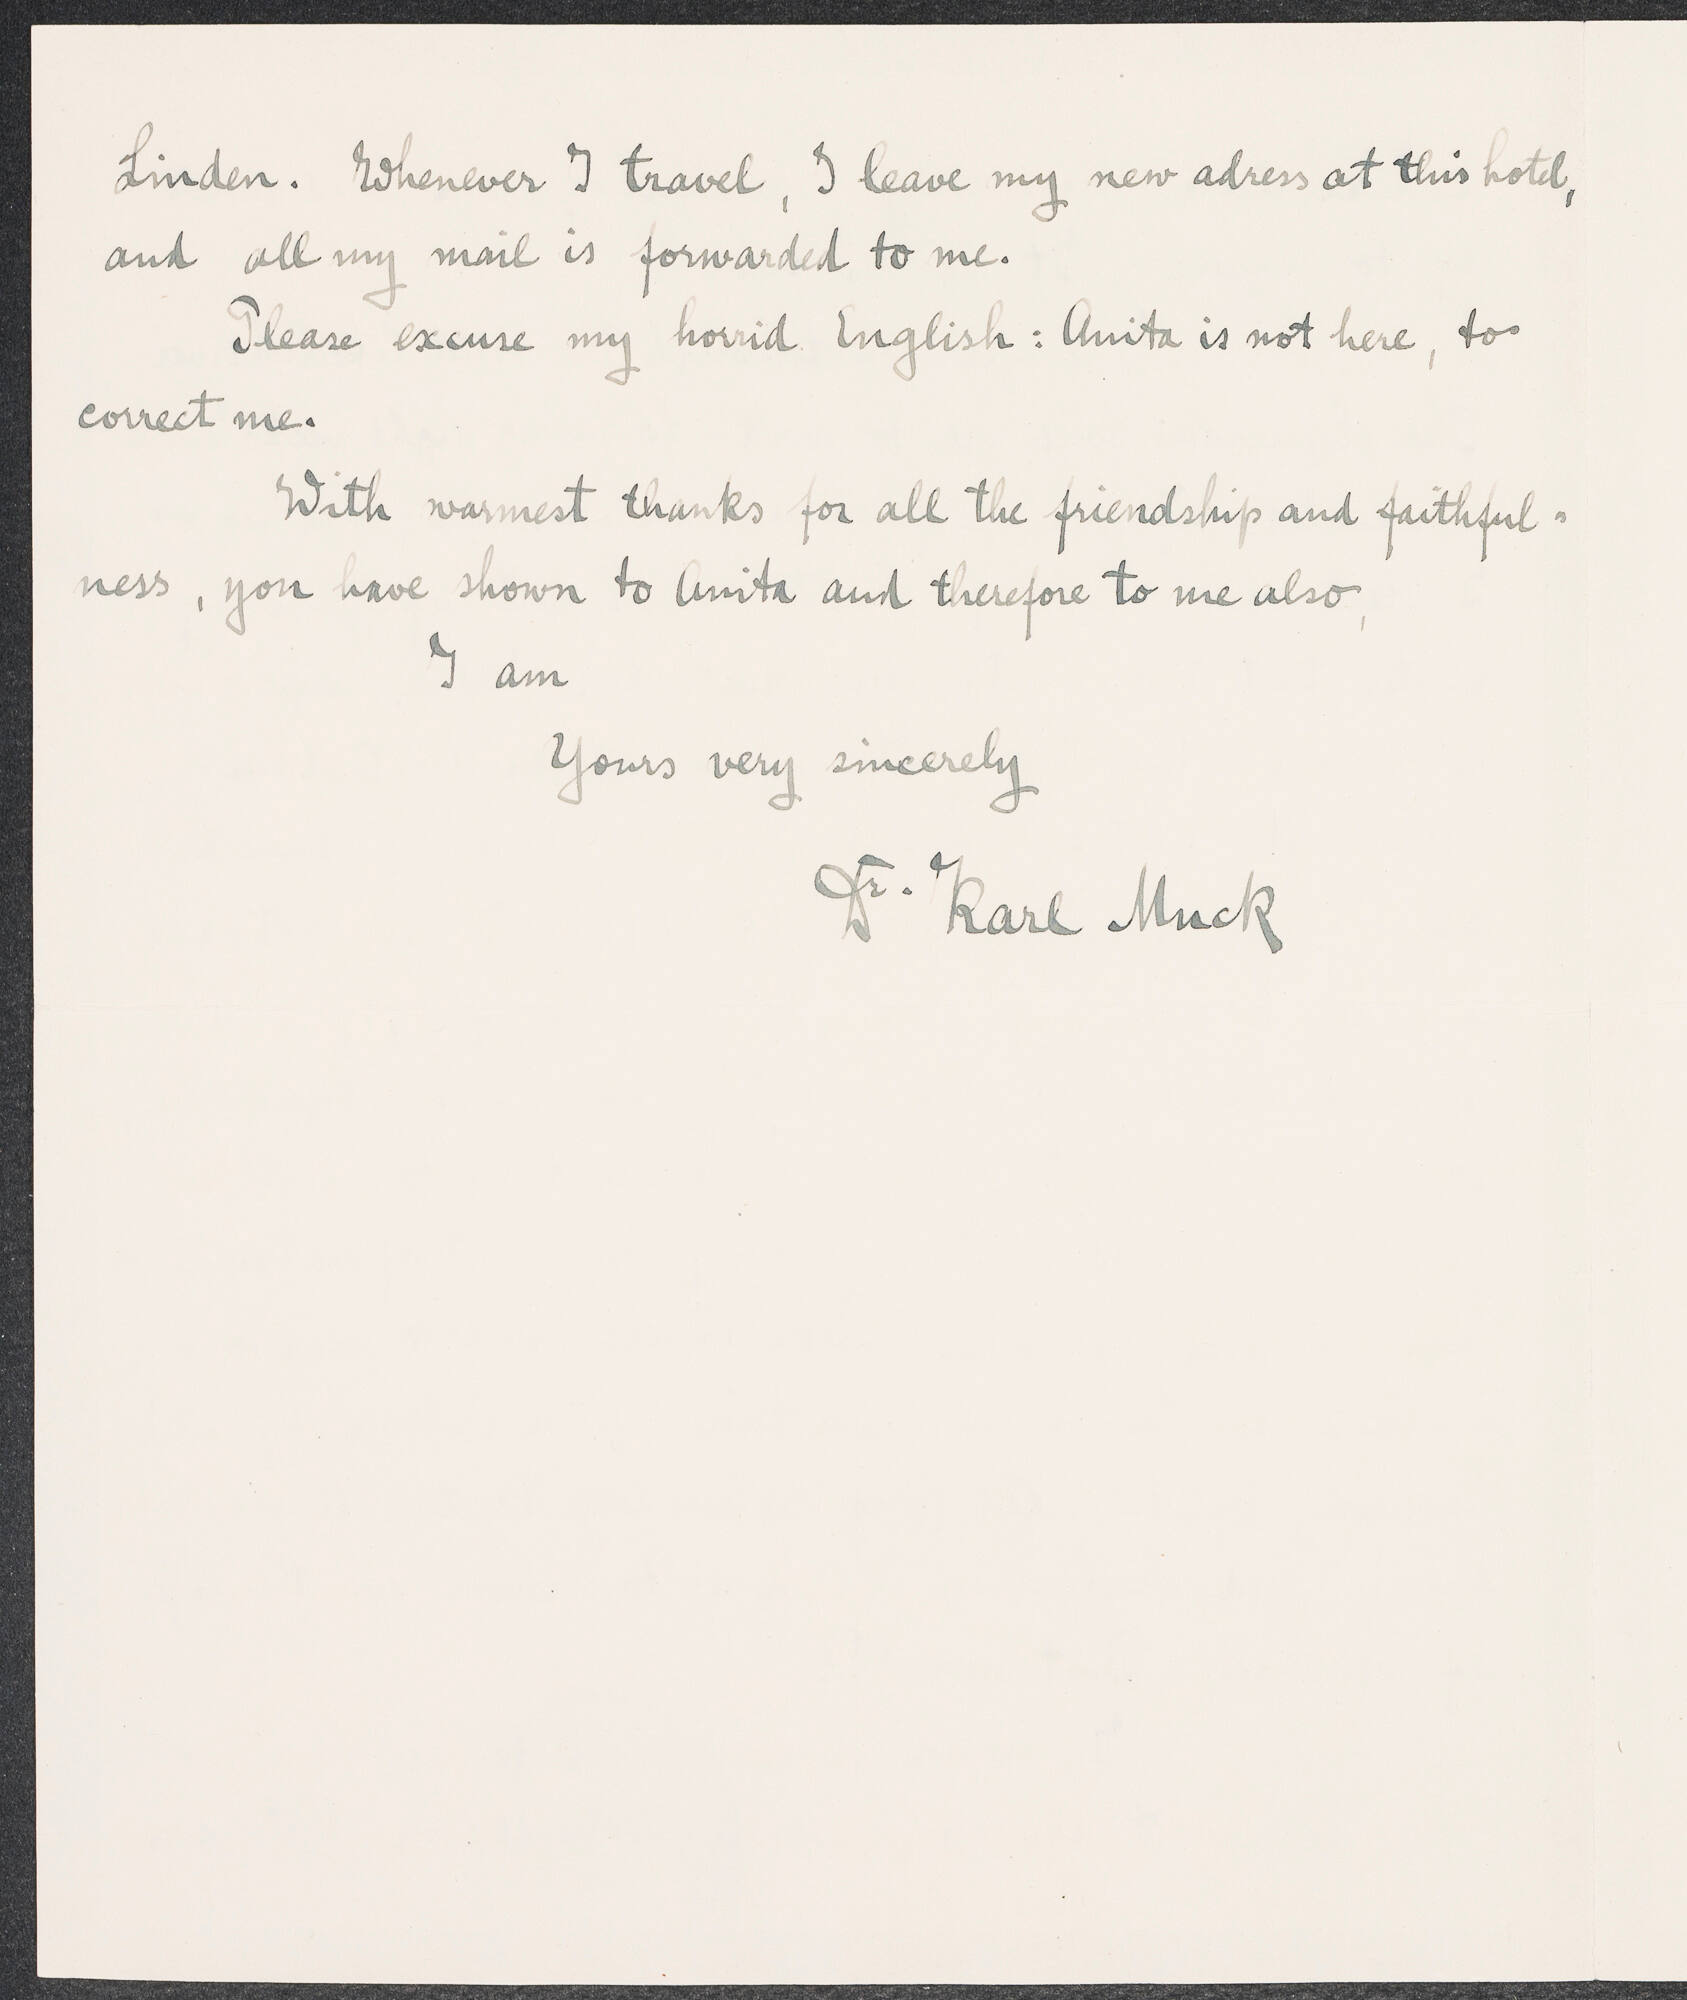 Linden. Whenever I travel, I leave my new adress at this hotel,
and all my mail is forwarded to me.
Please excuse my horrid English: Anita is not here, to
correct me.
With warmest thanks for all the friendship and faithful-
ness, you have shown to Anita and therefore to me also,
I am
Yours very sincerely
Dr. Karl Muck